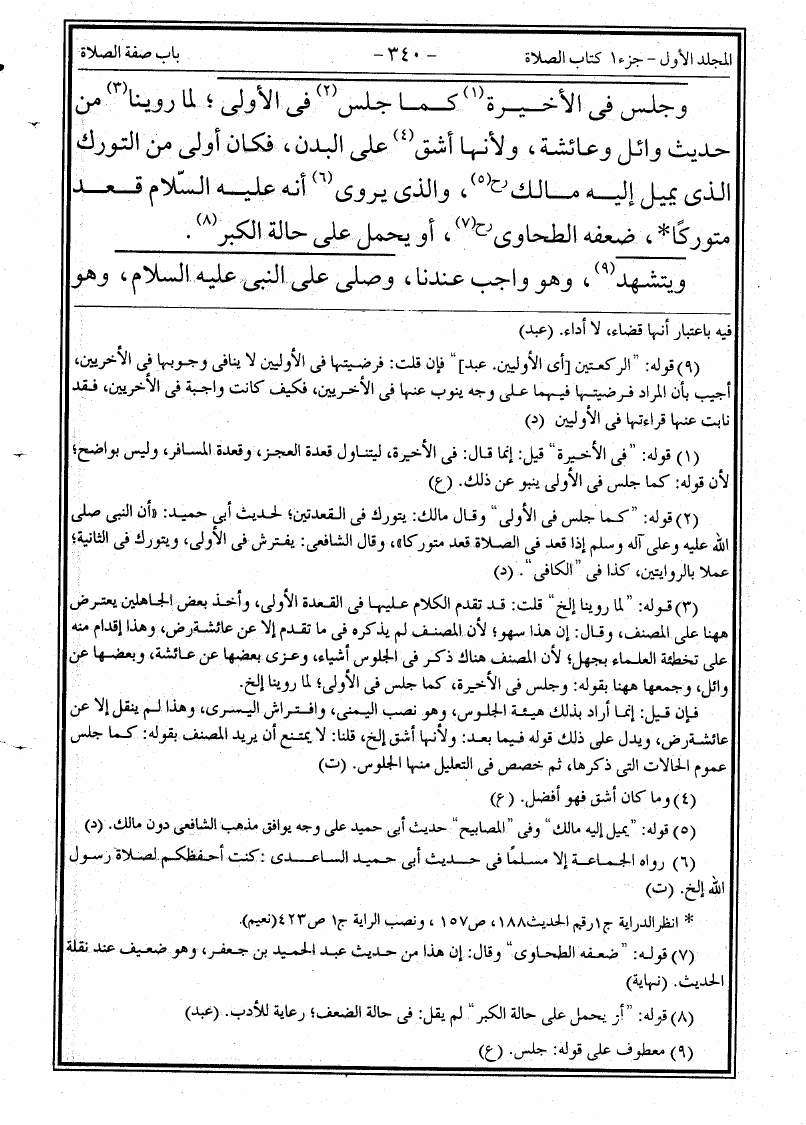 المجلد الأول - جزء ١ كتاب الصلاة - ٣٤٠ - باب صفة الصلاة
وجلس فى الأخيرة(١) كما جلس(٢) فى الأولى؛ لما روينا(٣) من
حديث وائل وعائشة، ولأنها أشق(٤) على البدن، فكان أولى من التورك
الذى يميل إليه مالك رح(٥)، والذى يروى(٦) أنه عليه السّلام قعد
متوركًا*، ضعفه الطحاوى رح(٧)، أو يحمل على حالة الكبر(٨).
ويتشهد(٩)، وهو واجب عندنا، وصلى على النبى عليه السلام، وهو
فيه باعتبار أنها قضاء، لا أداء. (عبد)
(٩) قوله: "الركعتين [أى الأوليين. عبد]" فإن قلت: فرضيتها فى الأوليين لا ينافى وجوبها فى الأخريين،
أجيب بأن المراد فرضيتها فيهما على وجه ينوب عنها فى الأخريين، فكيف كانت واجبة فى الأخريين، فقد
نابت عنها قراءتها فى الأوليين (د)
(١) قوله: "فى الأخيرة" قيل: إنما قال: فى الأخيرة، ليتناول قعدة العجز، وقعدة المسافر، وليس بواضح؛
لأن قوله: كما جلس فى الأولى ينبو عن ذلك. (ع)
(٢) قوله: "كما جلس فى الأولى" وقال مالك: يتورك فى القعدتين؛ لحديث أبى حميد: «أن النبى صلى
الله عليه وعلى آله وسلم إذا قعد فى الصلاة قعد متوركا»، وقال الشافعى: يفترش فى الأولى، ويتورك فى الثانية؛
عملا بالروايتين، كذا فى "الكافى". (د)
(٣) قوله: "لما روينا إلخ" قلت: قد تقدم الكلام عليها فى القعدة الأولى، وأخذ بعض الجاهلين يعترض
ههنا على المصنف، وقال: إن هذا سهو؛ لأن المصنف لم يذكره فى ما تقدم إلا عن عائشة رض، وهذا إقدام منه
على تخطئة العلماء بجهل؛ لأن المصنف هناك ذكر فى الجلوس أشياء، وعزى بعضها عن عائشة، وبعضها عن
وائل، وجمعها ههنا بقوله: وجلس فى الأخيرة، كما جلس فى الأولى؛ لما روينا إلخ.
فإن قيل: إنما أراد بذلك هيئة الجلوس، وهو نصب اليمنى، وافتراش اليسرى، وهذا لم ينقل إلا عن
عائشة رض، ويدل على ذلك قوله فيما بعد: ولأنها أشق إلخ، قلنا: لا يمتنع أن يريد المصنف بقوله: كما جلس
عموم الحالات التى ذكرها، ثم خصص فى التعليل منها الجلوس. (ت)
(٤) وما كان أشق فهو أفضل. (ع)
(٥) قوله: "يميل إليه مالك" وفى "المصابيح" حديث أبى حميد على وجه يوافق مذهب الشافعى دون مالك. (د)
(٦) رواه الجماعة إلا مسلمًا فى حديث أبى حميد الساعدى: كنت أحفظكم لصلاة رسول
الله إلخ. (ت)
* انظر الدراية ج١ رقم الحديث ١٨٨، ص١٥٧، ونصب الراية ج١ ص٤٢٣ (نعيم).
(٧) قوله: "ضعفه الطحاوى" وقال: إن هذا من حديث عبد الحميد بن جعفر، وهو ضعيف عند نقلة
الحديث. (نهاية)
(٨) قوله: "أو يحمل على حالة الكبر" لم يقل: فى حالة الضعف؛ رعاية للأدب. (عبد)
(٩) معطوف على قوله: جلس. (ع)